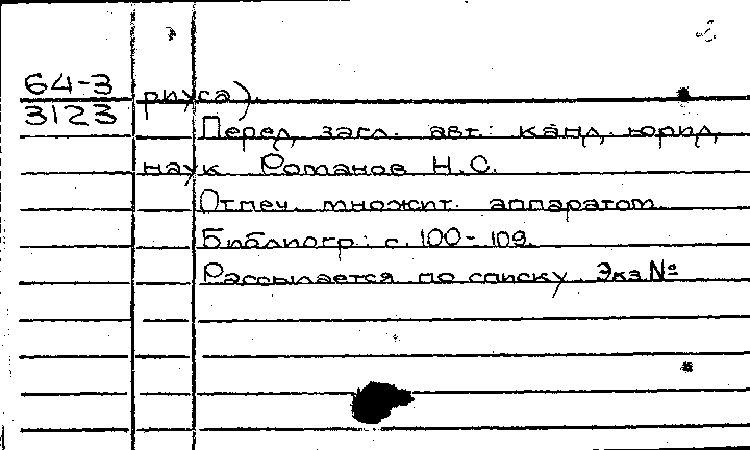 64-3
3123
риуса).
Перед загл. авт.: канд. юрид.
наук Романов Н.С.
Отпеч. множит. аппаратом.
Библиогр.: с. 100-109.
Рассылается по списку. Экз №